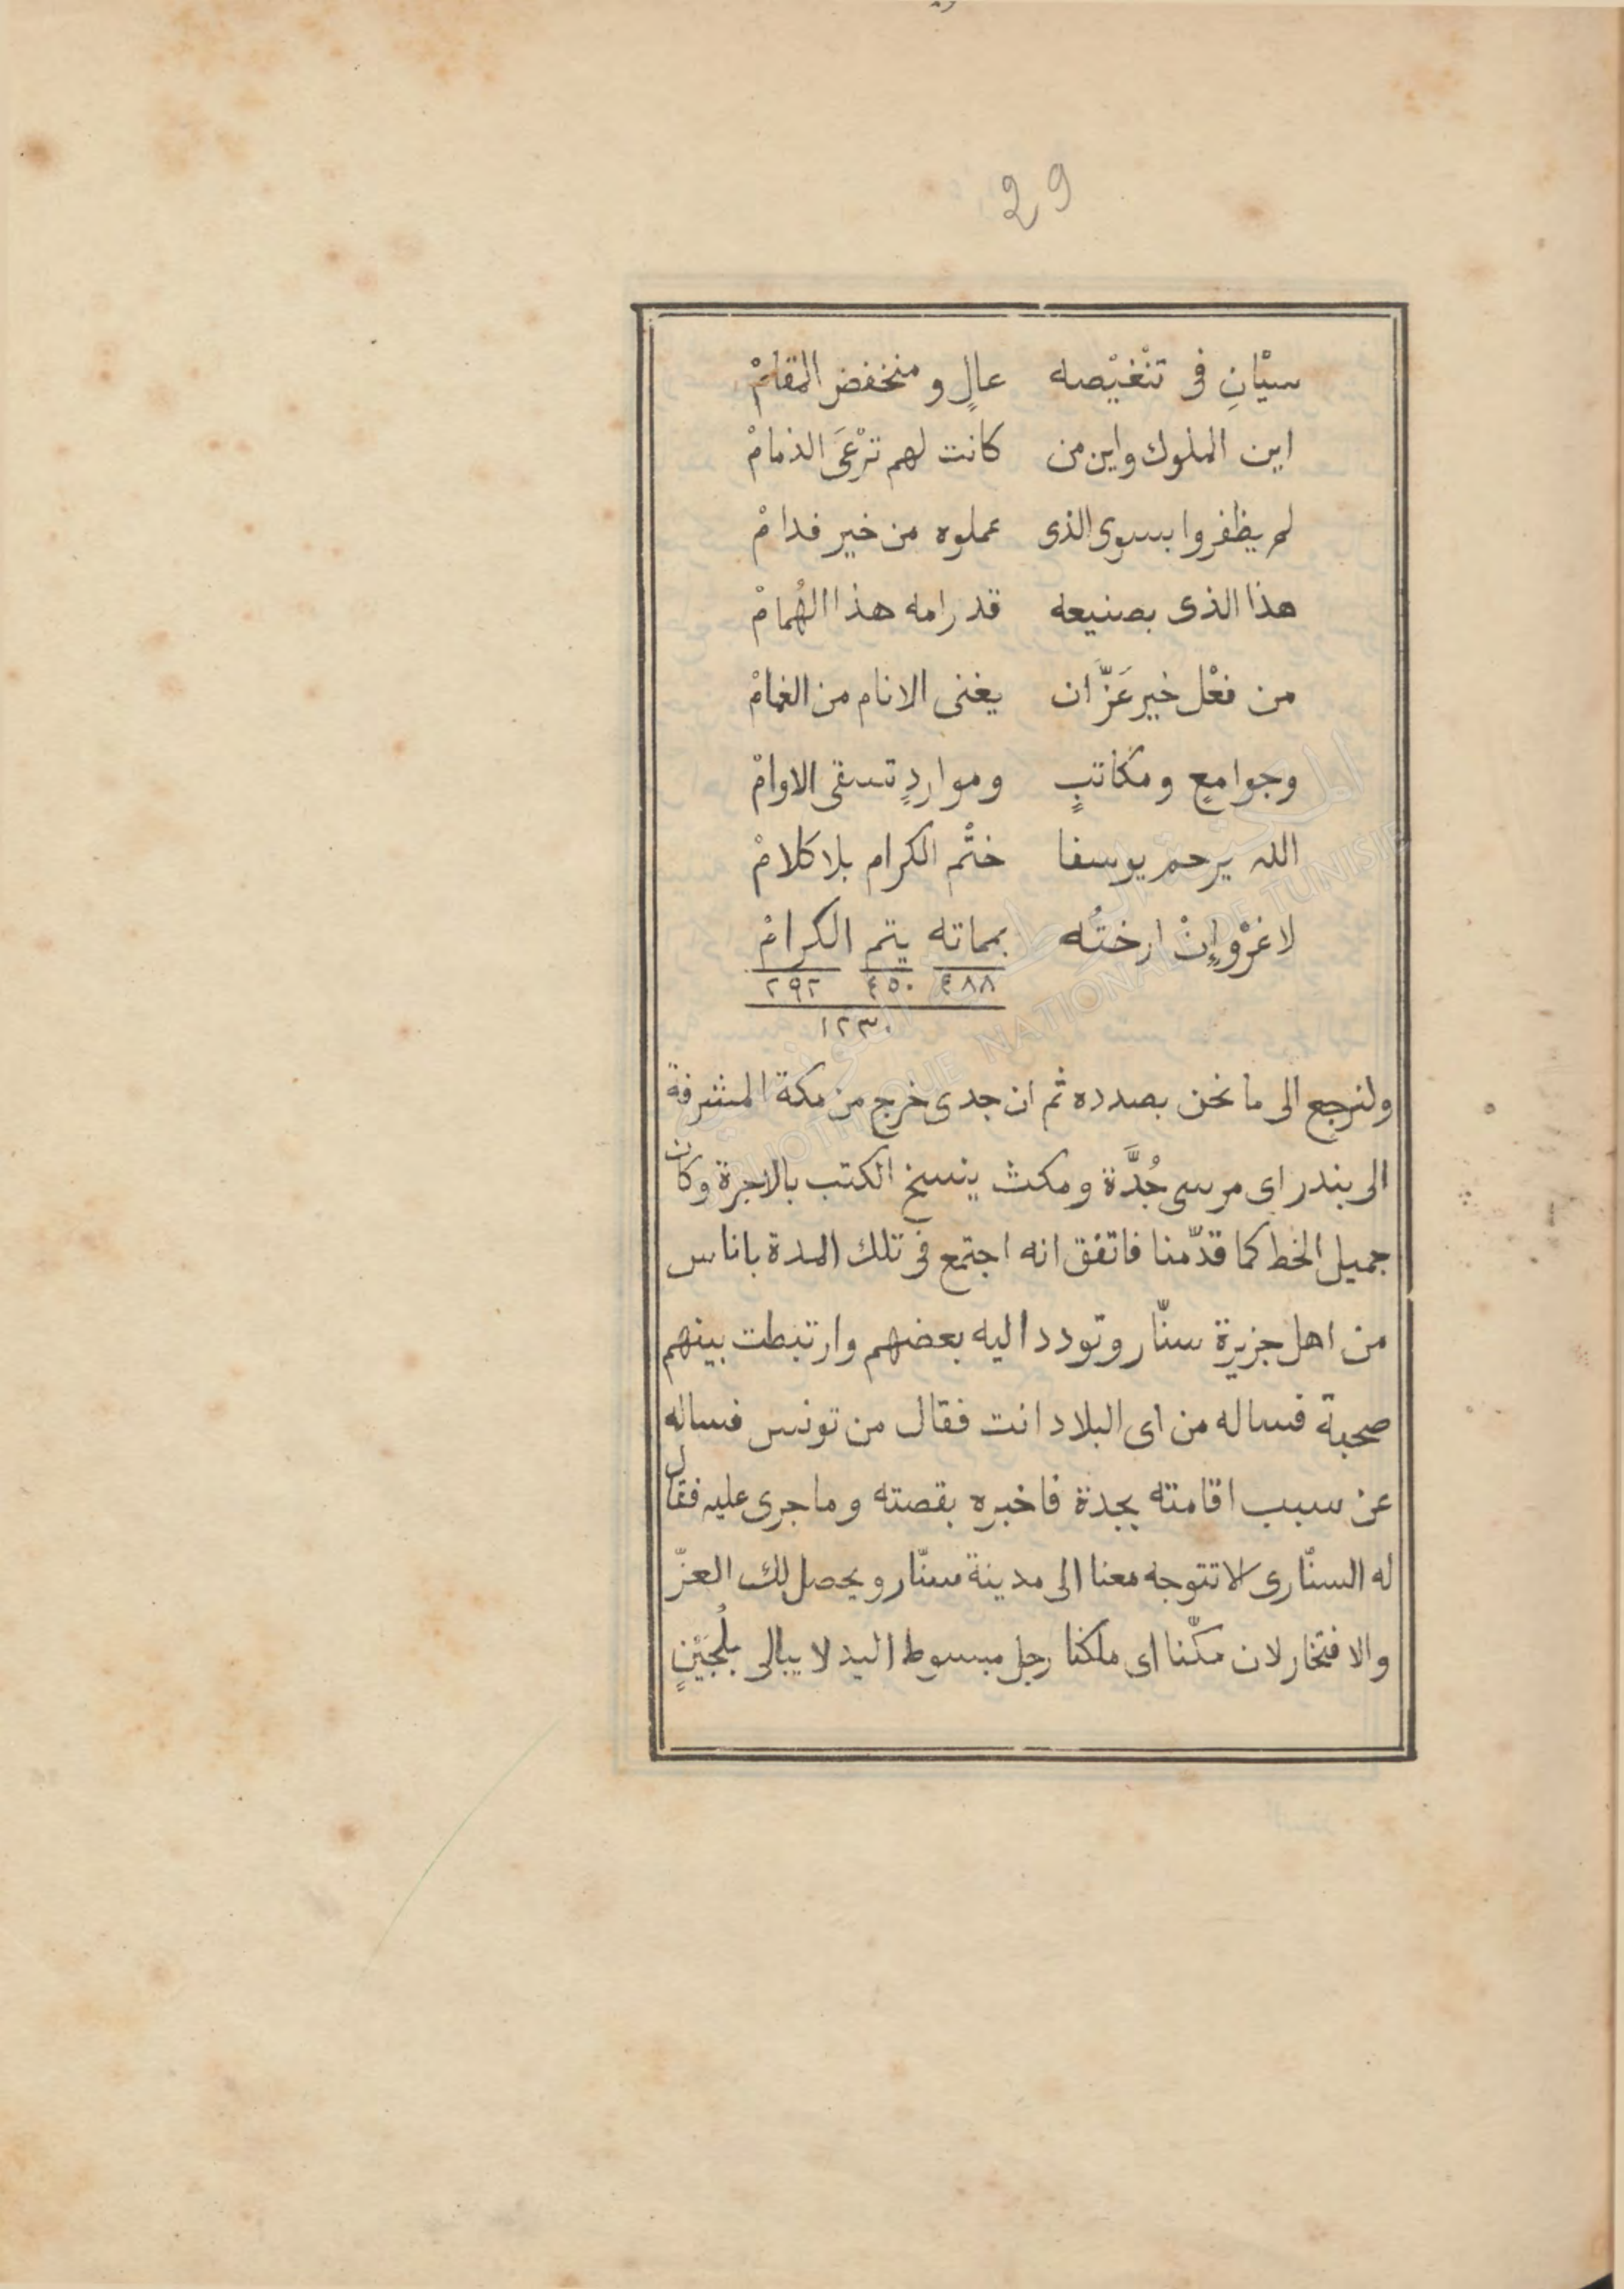 29
سيّانِ فى تنْغيْصه عالٍ و منخفض المقامْ
اين الملوك واين من كانت لهم ترْعَى الذمامْ
لم يظفروا بسوى الذى عملوه من خير فدامْ
هذا الذى بصنيعه قد رامه هذا الهُمامْ
من فعْل خير عَزّ ان يغنى الانام من الغمامْ
وجوامعٍ ومكاتبٍ ومواردٍ تسقى الاوامْ
الله يرحم يوسفا ختْم الكرام بلا كلامْ
لا غرْو إنْ ارختُه بمماته يتم الكرامْ
٤٨٨ ٤٥٠ ٢٩٢
١٢٣٠
ولنرجع الى ما نحن بصدده ثم ان جدى خرج من مكة المشرفة
الى بندر اى مرسى جُدَّة ومكث ينسخ الكتب بالاجرة وكان
جميل الخط كما قدّمنا فاتفق انه اجتمع فى تلك المدة باناس
من اهل جزيرة سنّار وتودد اليه بعضهم وارتبطت بينهم
صحبة فساله من اى البلاد انت فقال من تونس فساله
عن سبب اقامته بجدة فاخبره بقصته وما جرى عليه فقال
له السنّارى لا تتوجه معنا الى مدينة سنّار ويحصل لك العزّ
والافتخار لان مكّنا اى ملكنا رجل مبسوط اليد لا يبالى بلُجَيْنٍ
المكتبة الوطنية التونسية
BIBLIOTHEQUE NATIONALE DE TUNISIE